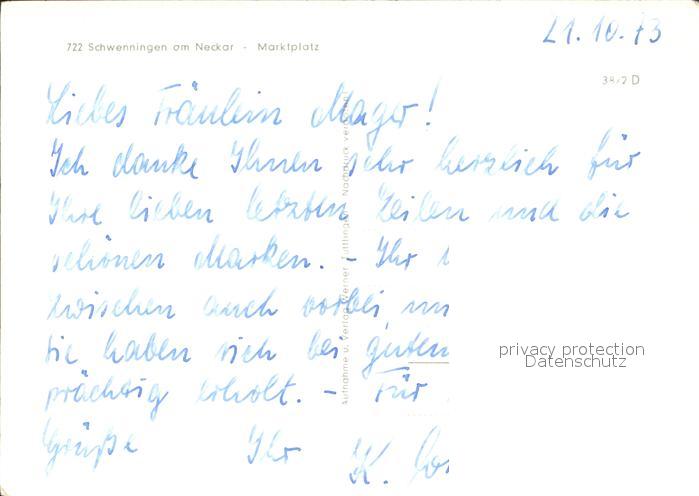 21.10.73
722 Schwenningen am Neckar - Marktplatz
38/2 D
Liebes Fräulein Mager!
Ich danke Ihnen sehr herzlich für
Ihre lieben letzten Zeilen und die
schönen Marken. - Ihr
zwischen auch vorbei, un
Sie haben sich bei guten
prächtig erholt. - Für
Grüße Ihr K.
Aufnahme u. Verlag Werner Tuttlingen Nachdruck verboten
privacy protection
Datenschutz